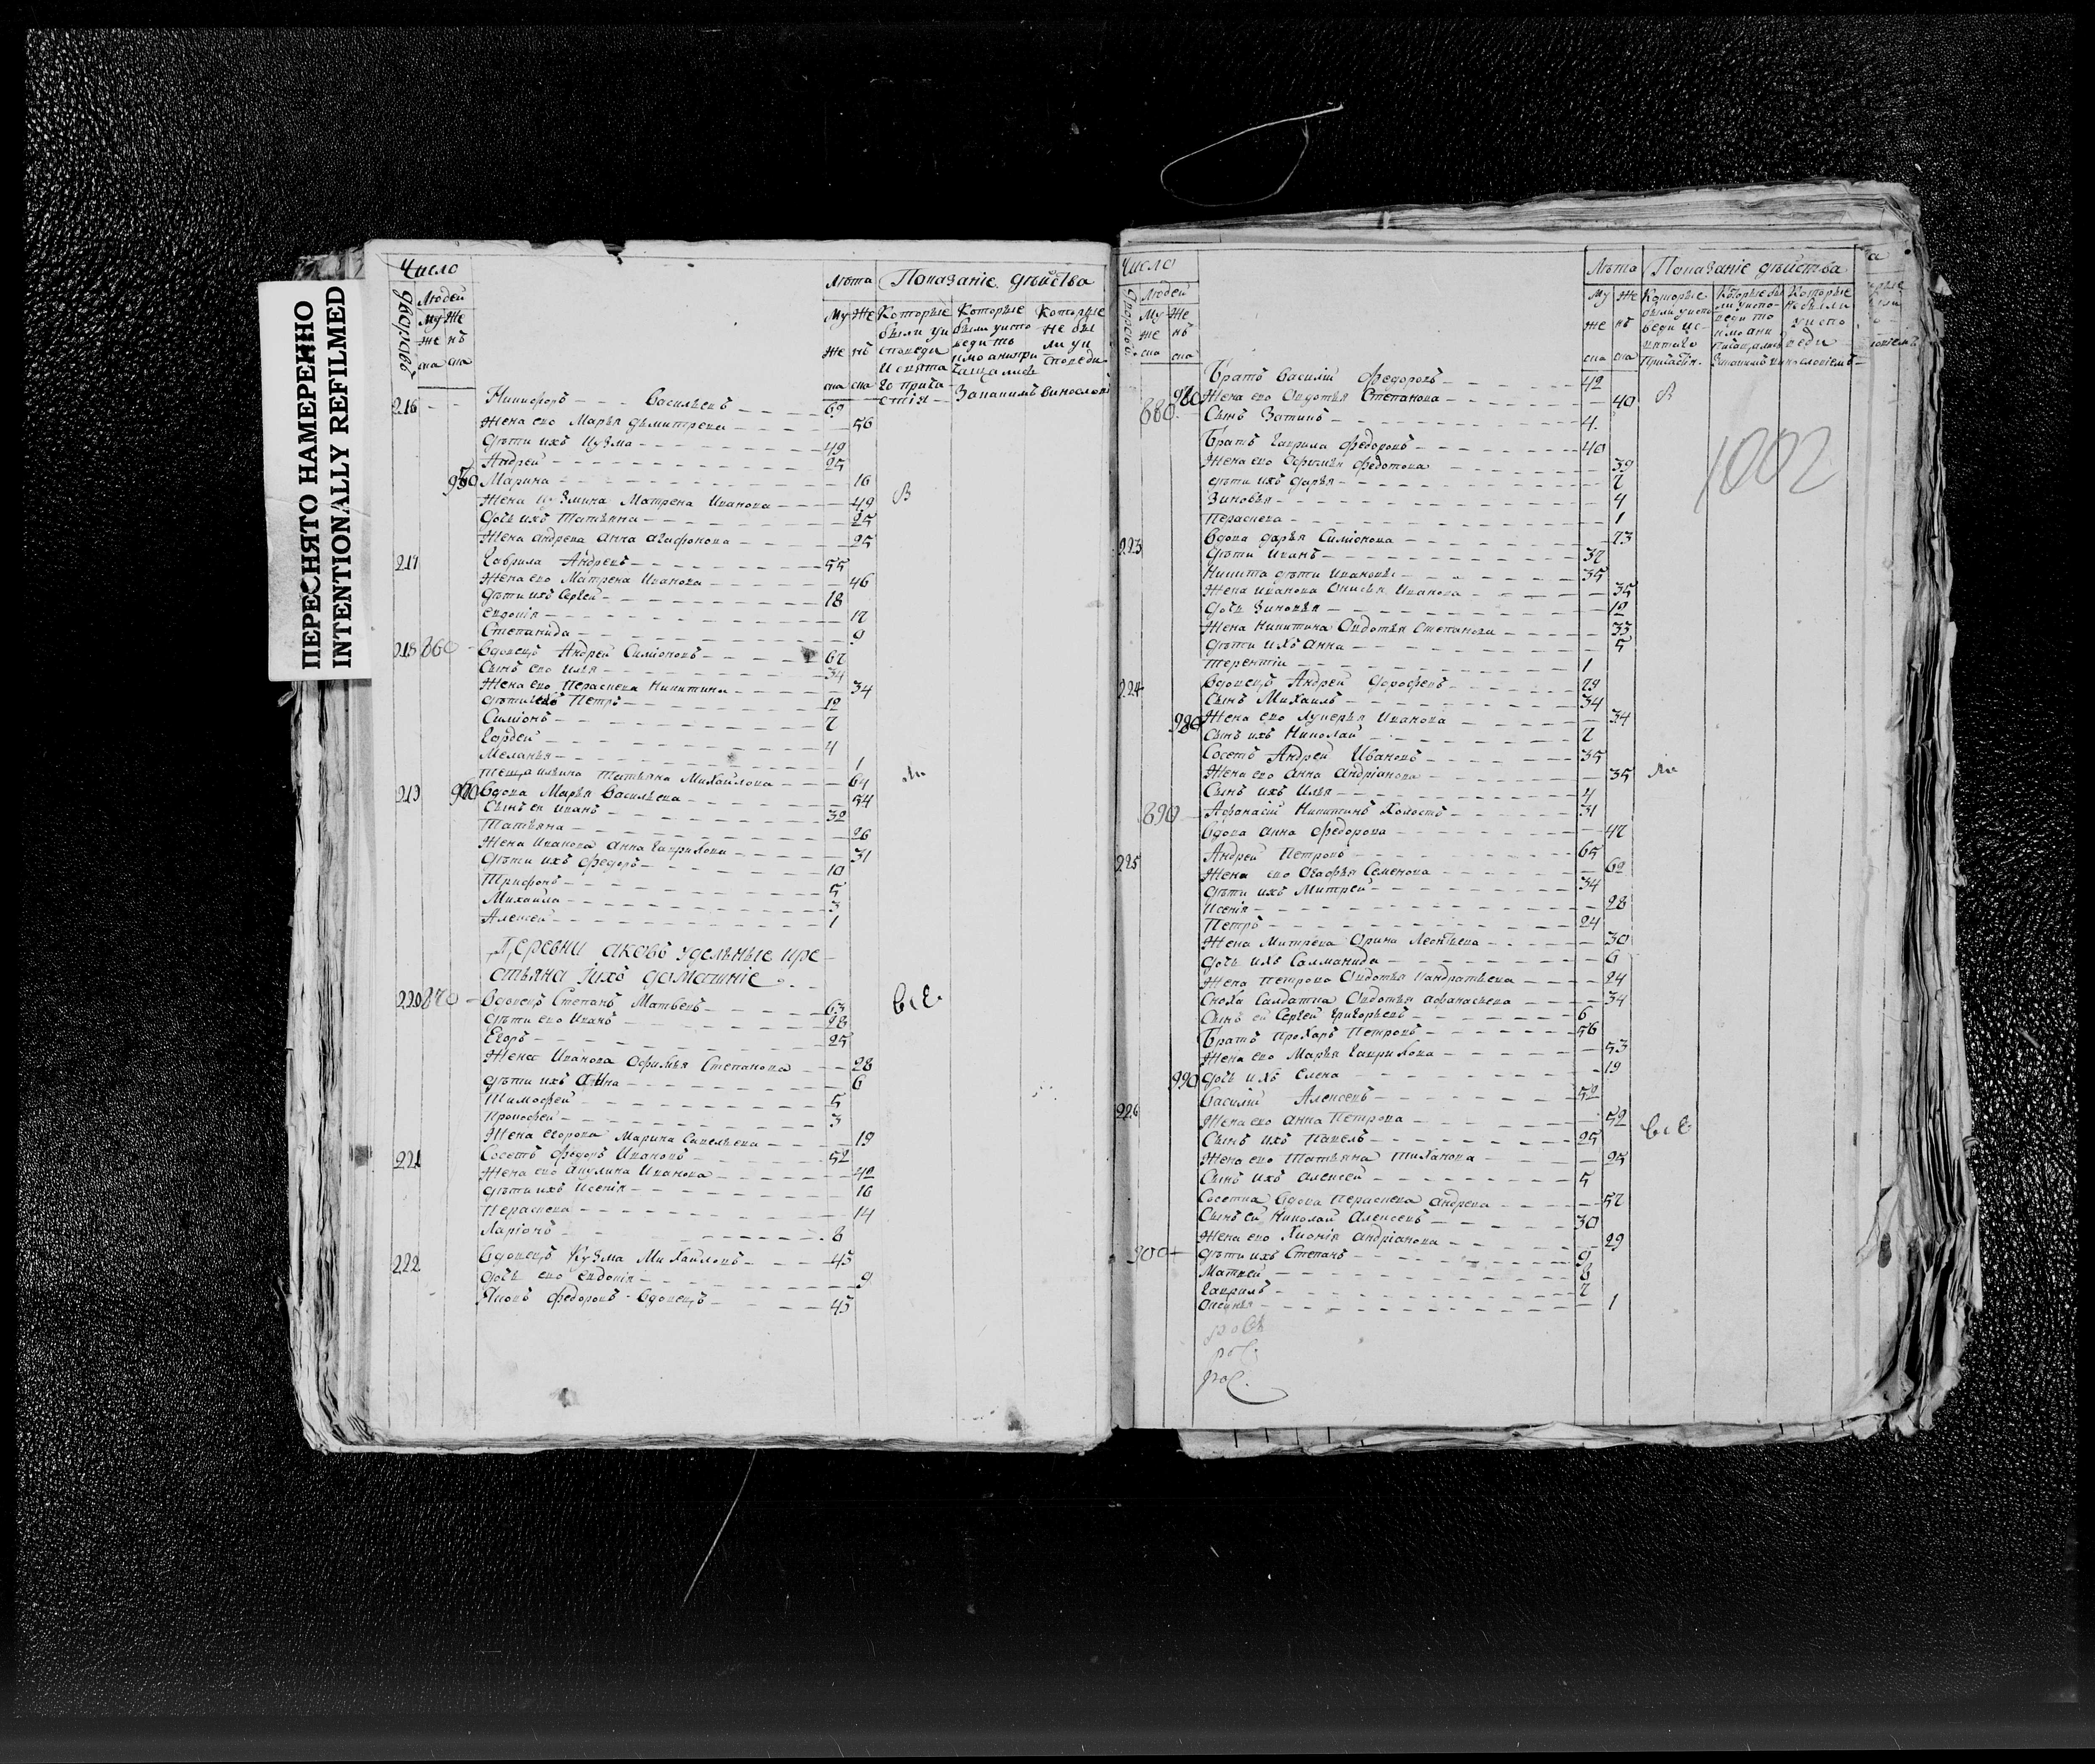 ПЕРЕСНЯТО НАМЕРЕННО
INTENTIONALLY REFILMED
Число
Людей
Му Же
же нъ
ска ска
Лѣта
Му Же
же нъ
ска ска
Показаніе дѣйства
Которые Которые Которые
216 Никифоръ Васильевъ 69
Жена ево Марья Дъмитрева 56
Дѣти ихъ Кузма 49
Андрей 25
950 Марина 16
Жена Кузмина Матрена Иванова 49
Дочь ихъ Татьяна 25
Жена Андрева Анна Агафонова 25
217 Гаврила Андревъ 55
Жена ево Матрена Иванова 46
Дѣти ихъ Сергей 18
Евдокія 17
Степанида 9
218 860 Вдовецъ Андрей Симіоновъ 67
Сынъ ево Илья 34
Жена ево Пераскева Никитина 34
Дѣти ихъ Петръ 12
Симіонъ 7
Гордей 4
Меланья 1
Теща Ильина Татьяна Михайлова 64
219 Вдова Марья Васильева 54
Сынъ ея Иванъ 32
Татьяна 26
Жена Иванова Анна Гаврилова 31
Дѣти ихъ Федоръ 10
Трифонъ 5
Михаила 3
Алексей 1
Деревни Аково удельные кре
стьяна ихъ домашніе
220 870 Вдовецъ Степанъ Матвевъ 63
Дѣти ево Иванъ 28
Егоръ 25
Жена Иванова Офимья Степанова 28
Дѣти ихъ Анна 6
Тимофей 5
Прокофей 3
Жена Егорова Марина Савельева 19
221 Соседъ Федоръ Ивановъ 52
Жена ево Акулина Иванова 42
Дѣти ихъ Ксенія 16
Пераскева 14
Ларіонъ 8
222 Вдовецъ Кузма Михайловъ 45
Дочь ево Евдокія 9
Яковъ Федоровъ Вдовецъ 45
Число
Людей
Му Же
же нъ
ска ска
Лѣта
Му Же
же нъ
ска ска
Показаніе дѣйства
Которые Которые Которые
Братъ Василій Федоровъ 42
980 Жена ево Овдотья Степанова 40
880 Сынъ 4
Братъ Гаврила Федоровъ 40
Жена ево Офимья Федотова 39
Дѣти ихъ Дарья 7
Зиновья 4
Пераскева 1
1002
223 Вдова Дарья Симіонова 73
Дѣти Иванъ 37
Никита дѣти Ивановы 35
Жена Иванова Онисья Иванова 35
Дочь Зиновья 12
Жена Никитина Овдотья Степанова 33
Дѣти ихъ Анна 5
Терентій 1
224 Вдовецъ Андрей Дорофевъ 79
Сынъ Михаилъ 34
Жена ево Лукерья Иванова 34
Сынъ ихъ Николай 7
Соседъ Андрей Ивановъ 35
Жена ево Анна Андріанова 35
Сынъ ихъ Илья 4
890 Афанасій Никитинъ Холостъ 31
Вдова Анна Федорова 47
225 Андрей Петровъ 65
Жена ево Агафья Семенова 62
Дѣти ихъ Митрей 34
Ксенія 28
Петръ 24
Жена Митрева Орина Леонтьева 30
Дочь ихъ Саламанида 6
Жена Петрова Овдотья Кандратьева 24
Сноха Салдатка Овдотья Афанасьева 34
Сынъ ей Сергей Григорьевъ 6
Братъ Прохаръ Петровъ 56
Жена ево Марья Гаврилова 53
990 Дочь ихъ Елена 19
226 Василій Алексевъ 52
Жена ево Анна Петрова 52
Сынъ ихъ Павелъ 25
Жена ево Татьяна Тиханова 25
Сынъ ихъ Алексей 5
Соседка Вдова Пераскева Андрева 57
Сынъ ей Николай Алексевъ 30
Жена ево Хионія Андріанова 29
900 Дѣти ихъ Степанъ 9
Матвей 8
Гаврилъ 7
Оксинья 1